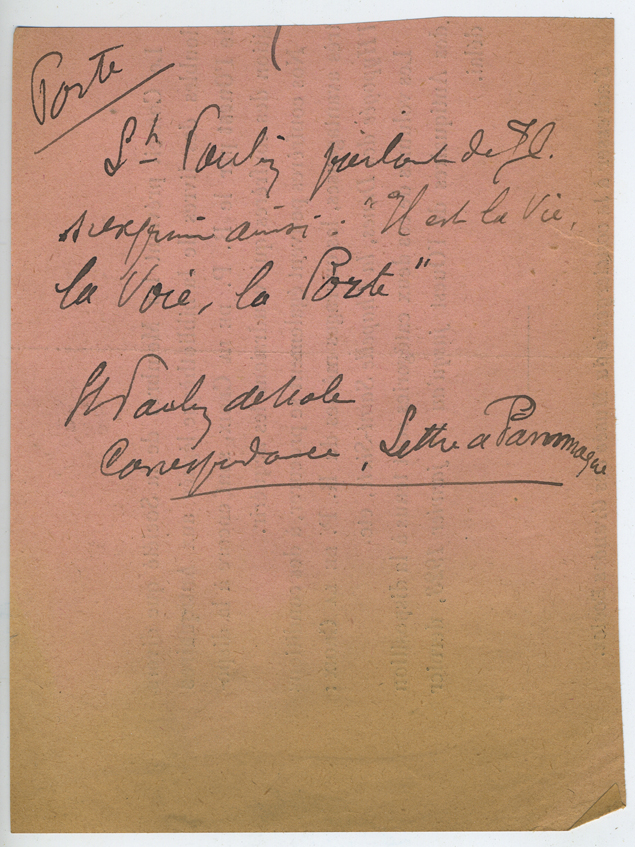 Porte
St Paulin parlant de J.C.
s'exprime ainsi : "Il est la Vie,
la Voie, la Porte"
St Paulin de Nole
Correspondance, Lettre à Pammaque